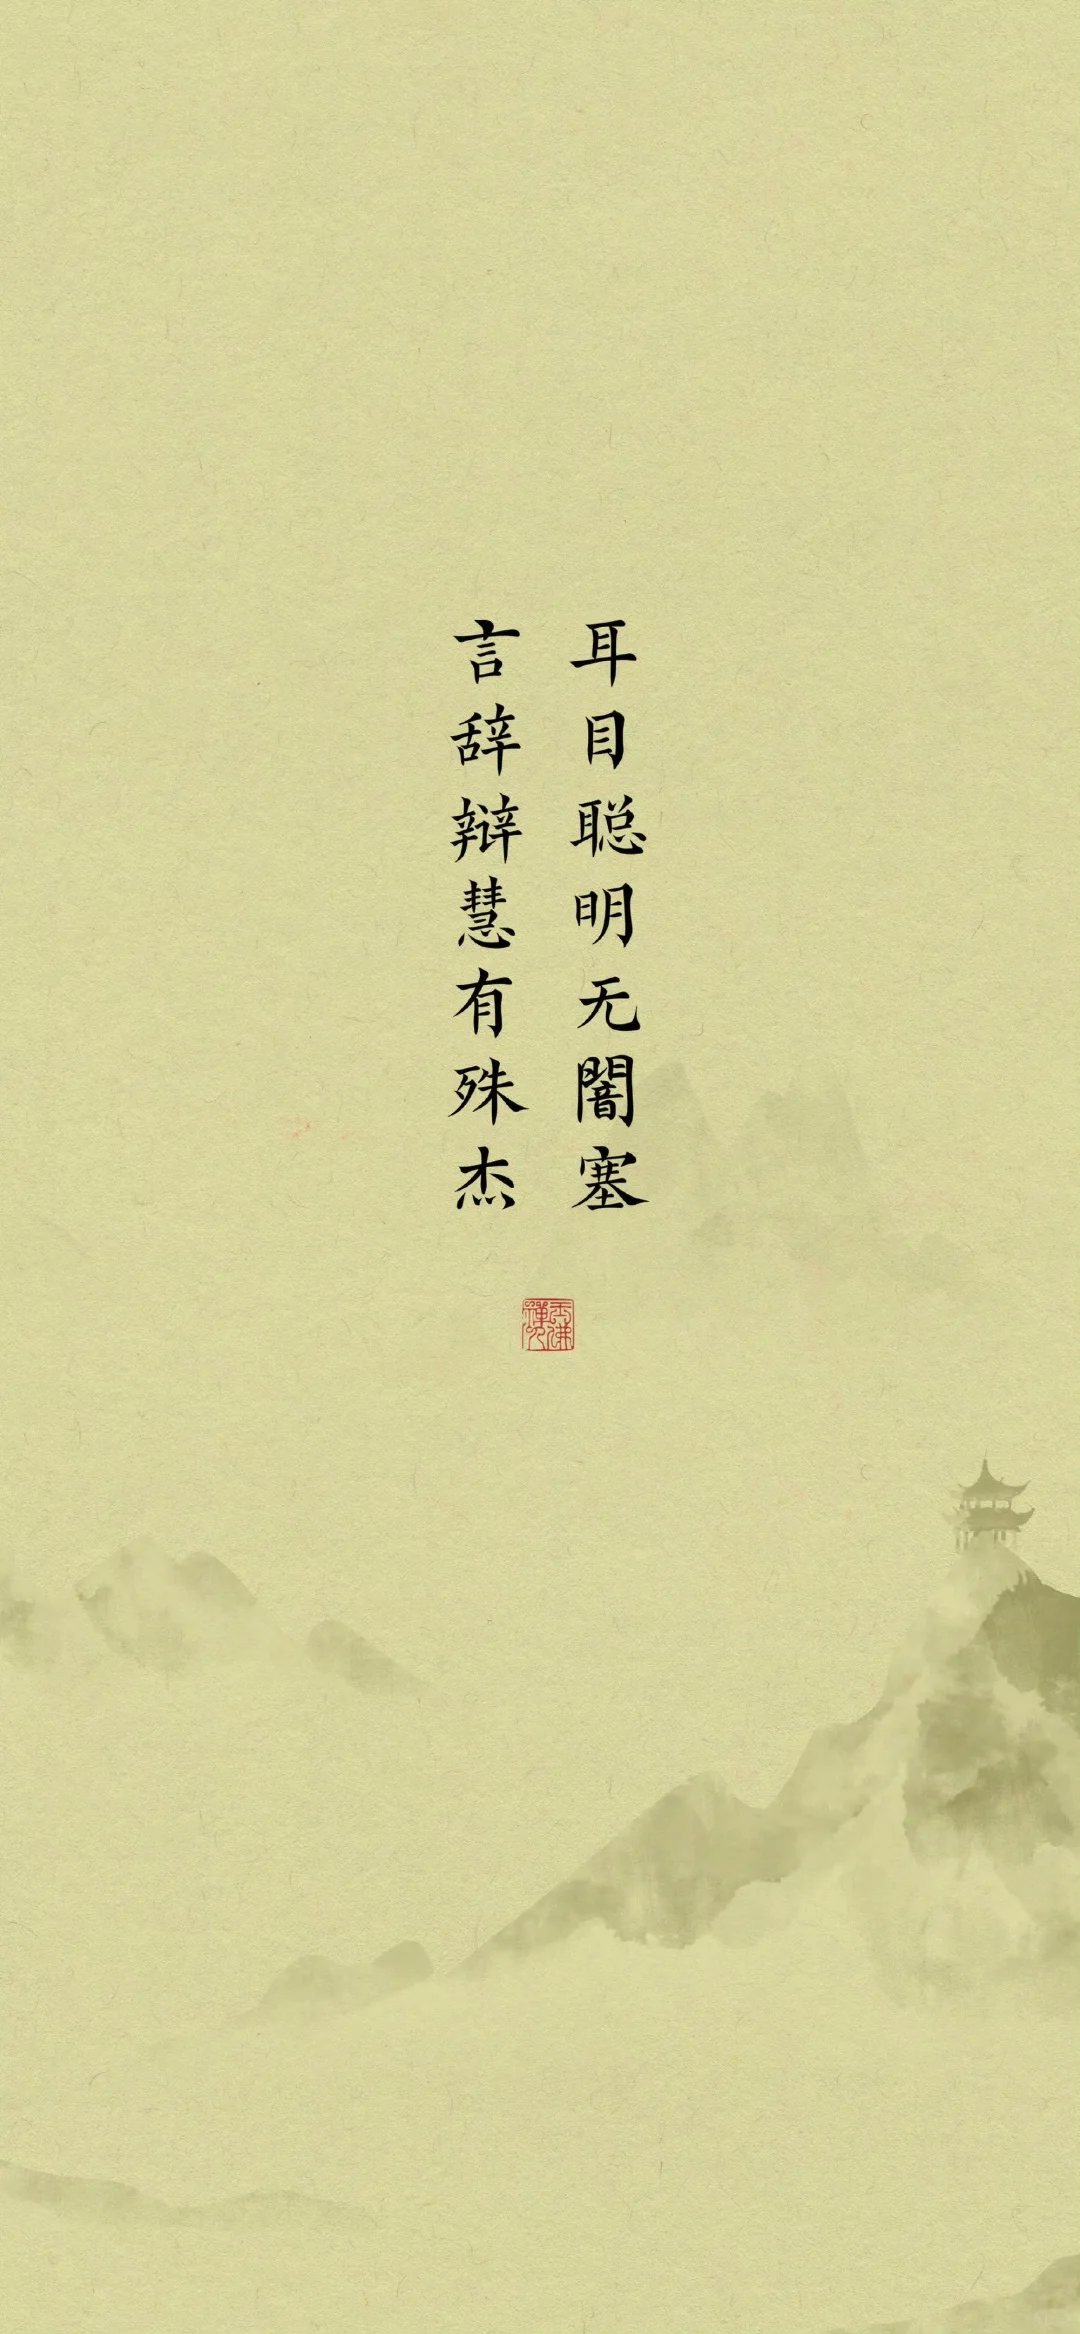 耳目聪明无闇塞
言辞辩慧有殊杰